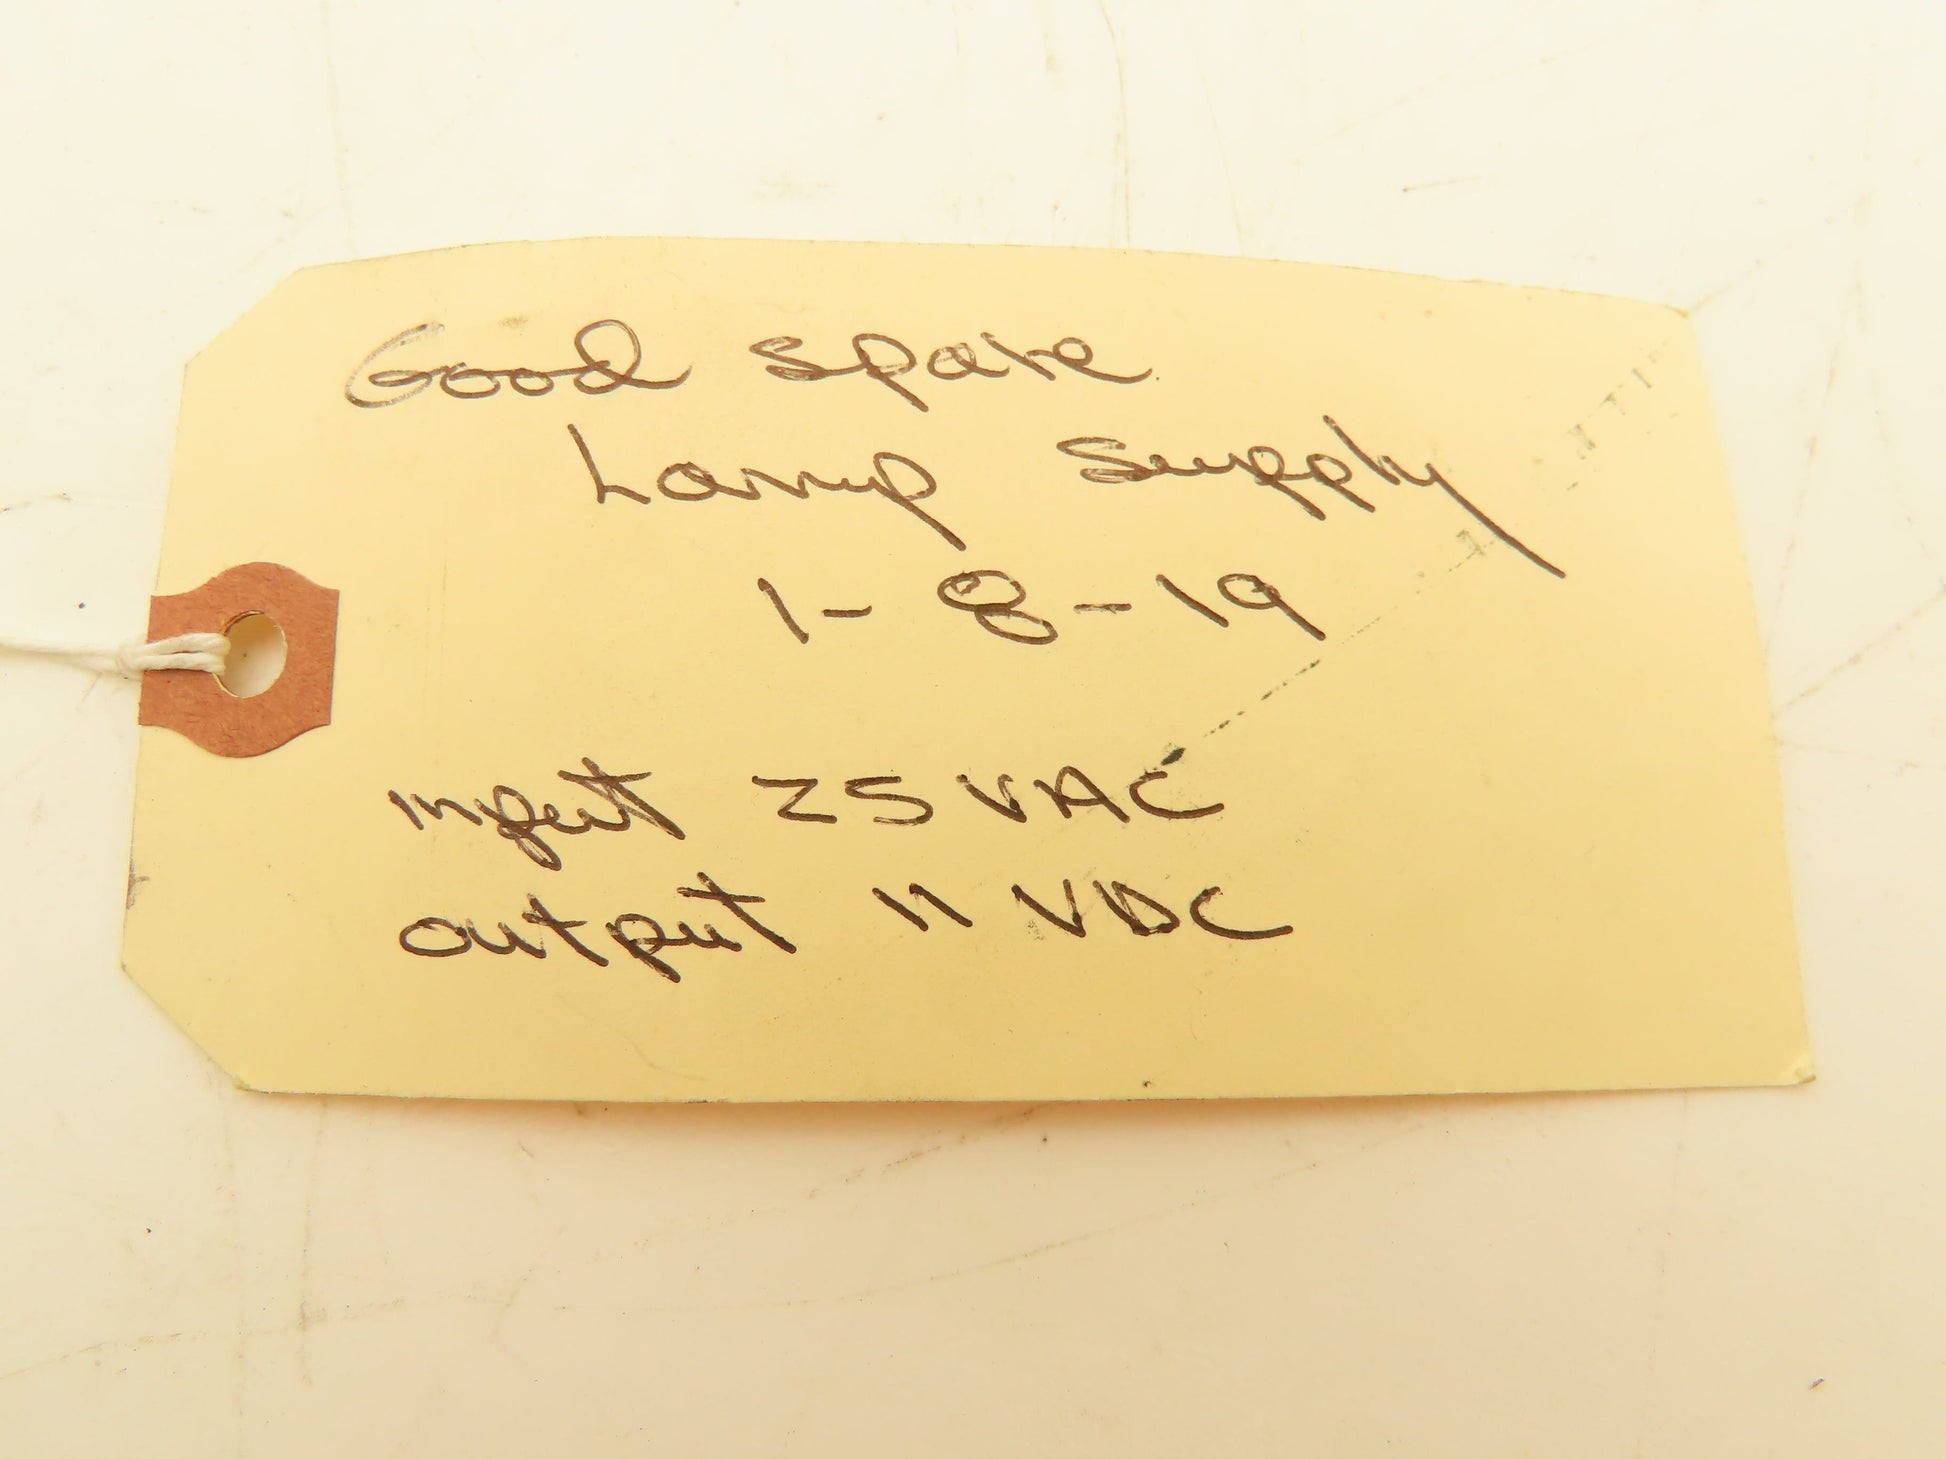 Good spare
Lamp supply
1-8-19
input 25 VAC
output 11 VDC